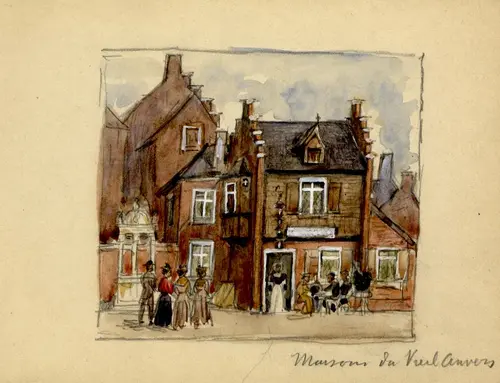 Maisons du Vieil Anvers